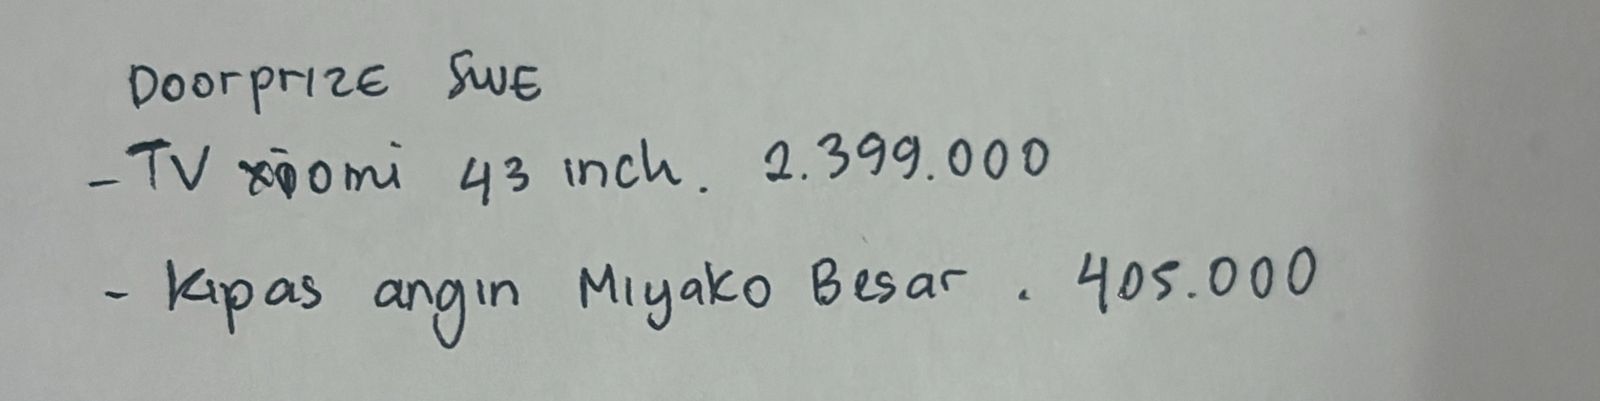 Doorprize SWE
- TV xiaomi 43 inch. 2.399.000
- Kipas angin Miyako Besar . 405.000